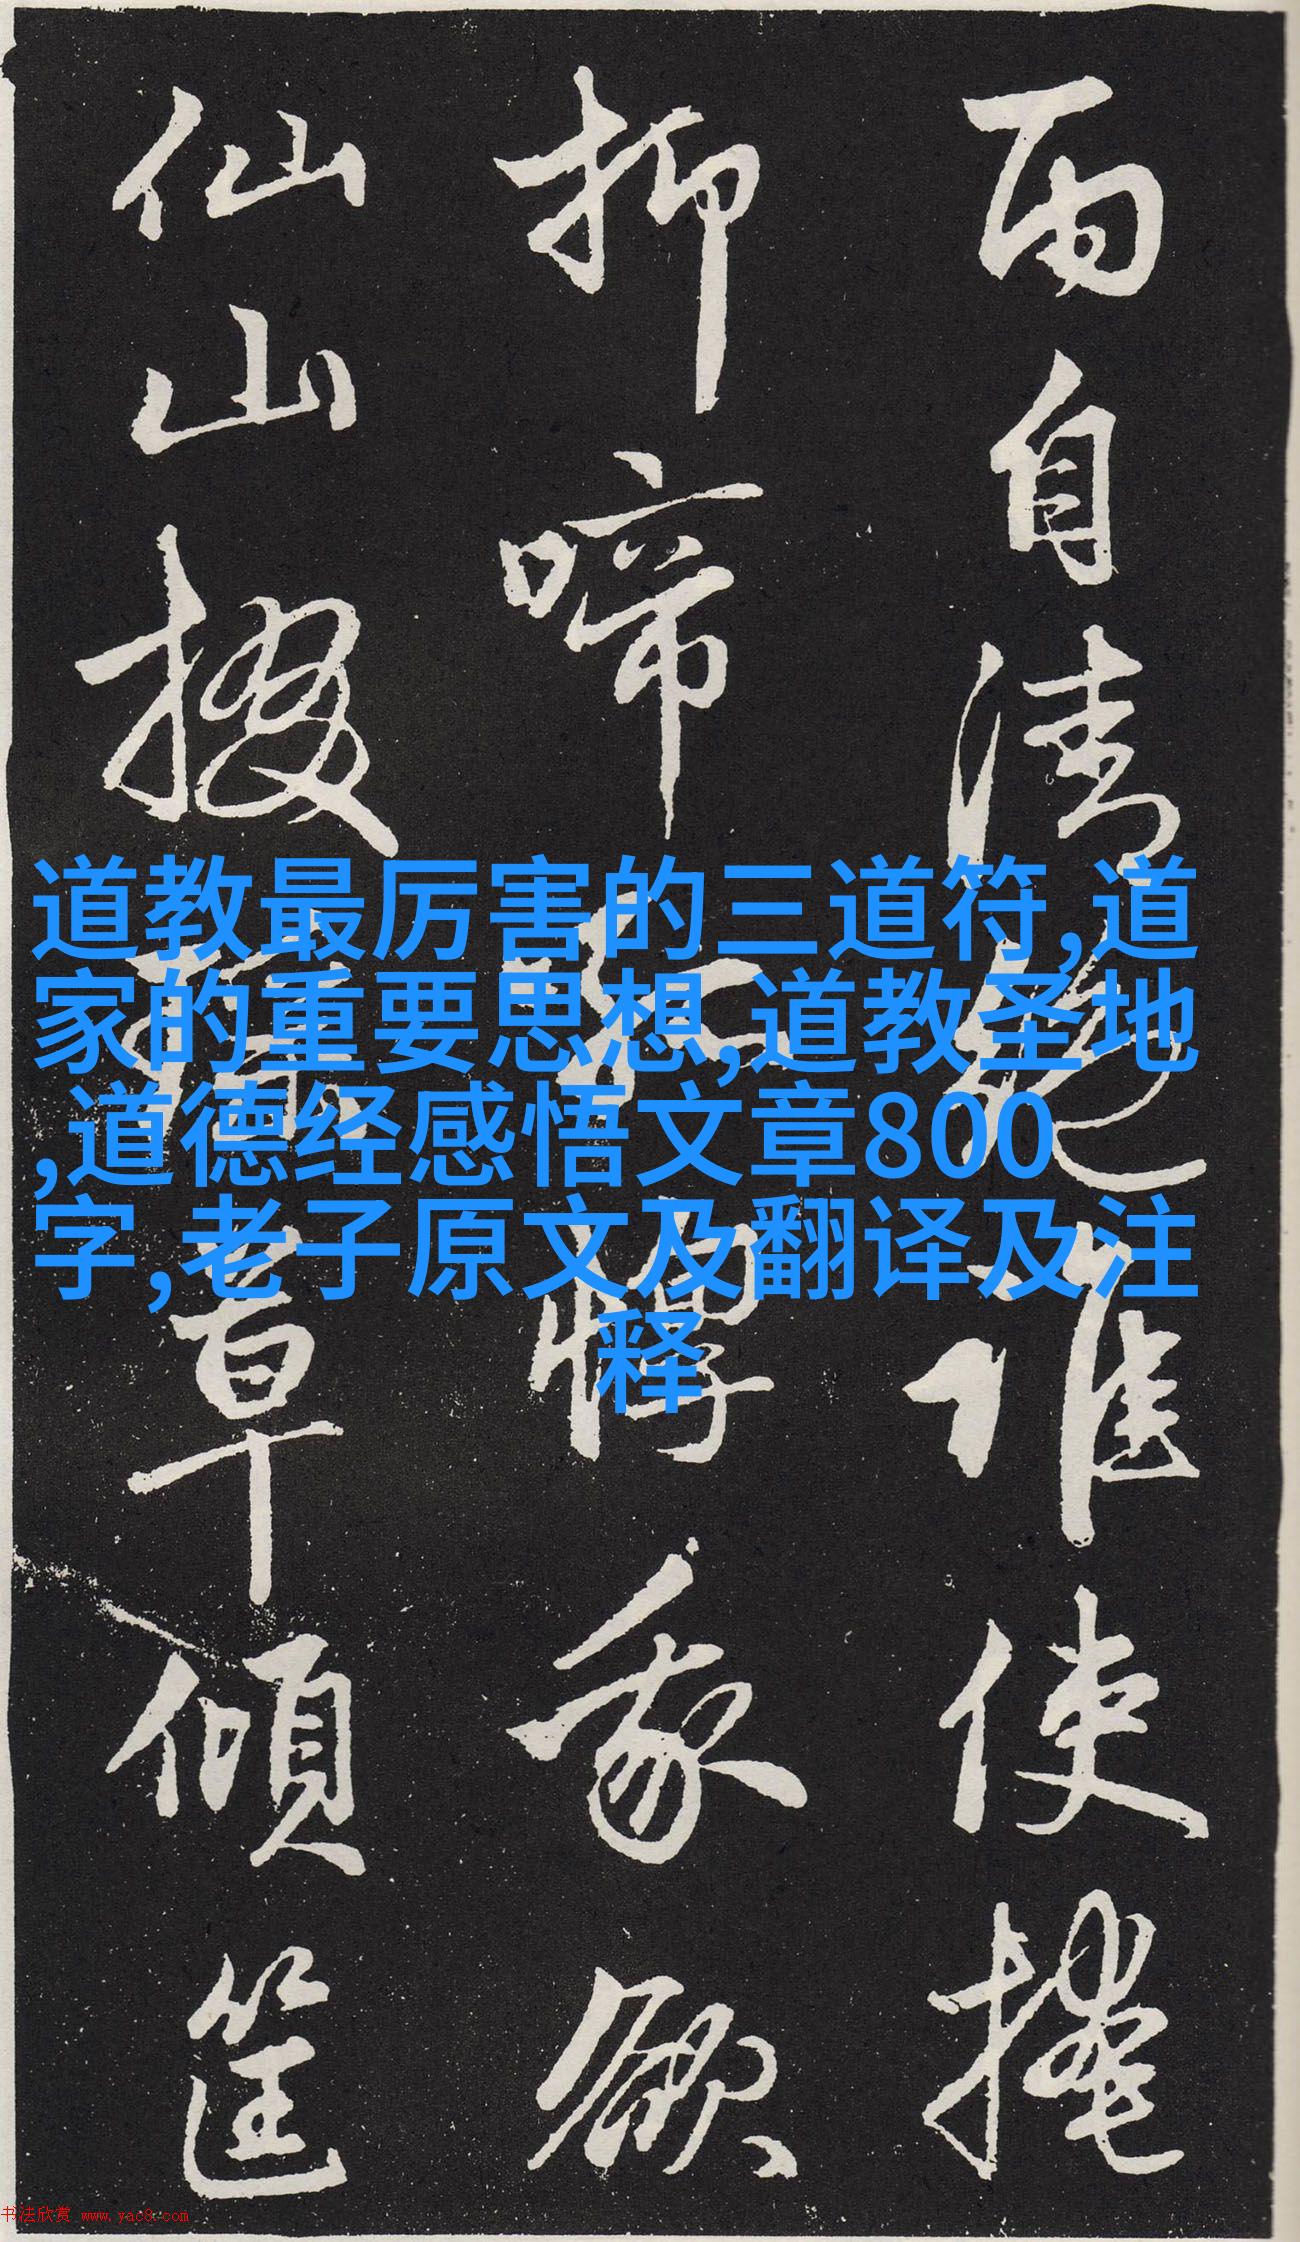 雨自清絕誰使掩
抑啼惸我欲
仙山掇草傾筐
道教最厉害的三道符,道
家的重要思想,道教圣地
,道德经感悟文章800
字,老子原文及翻译及注
释
书法欣赏 www.yac8.com